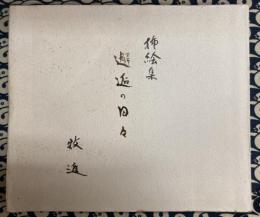 挿絵集
邂逅の日々
牧進